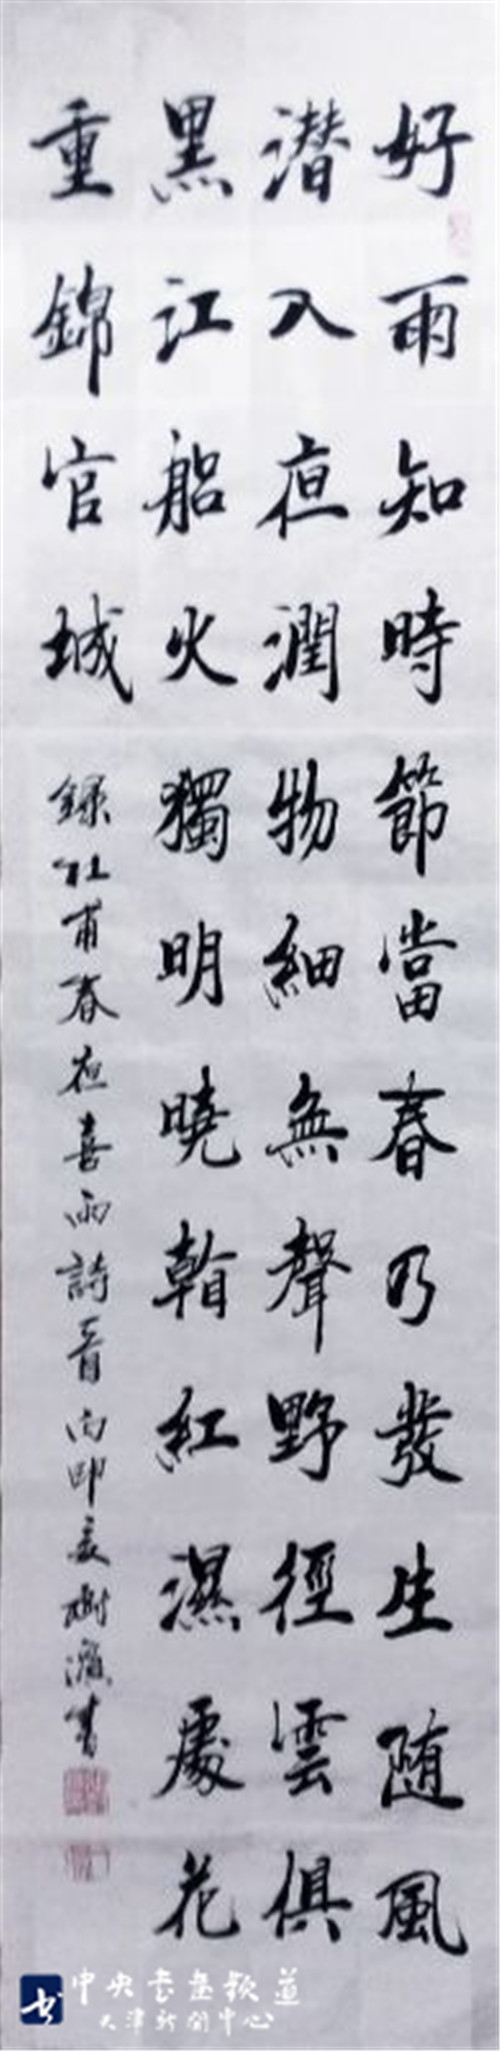 好雨知時節當春乃發生随風
潜入夜潤物細無聲野徑雲俱
黑江船火獨明曉看紅濕處花
重錦官城
錄杜甫春夜喜雨詩一首 夏 書
书
中央书画频道
天津新闻中心